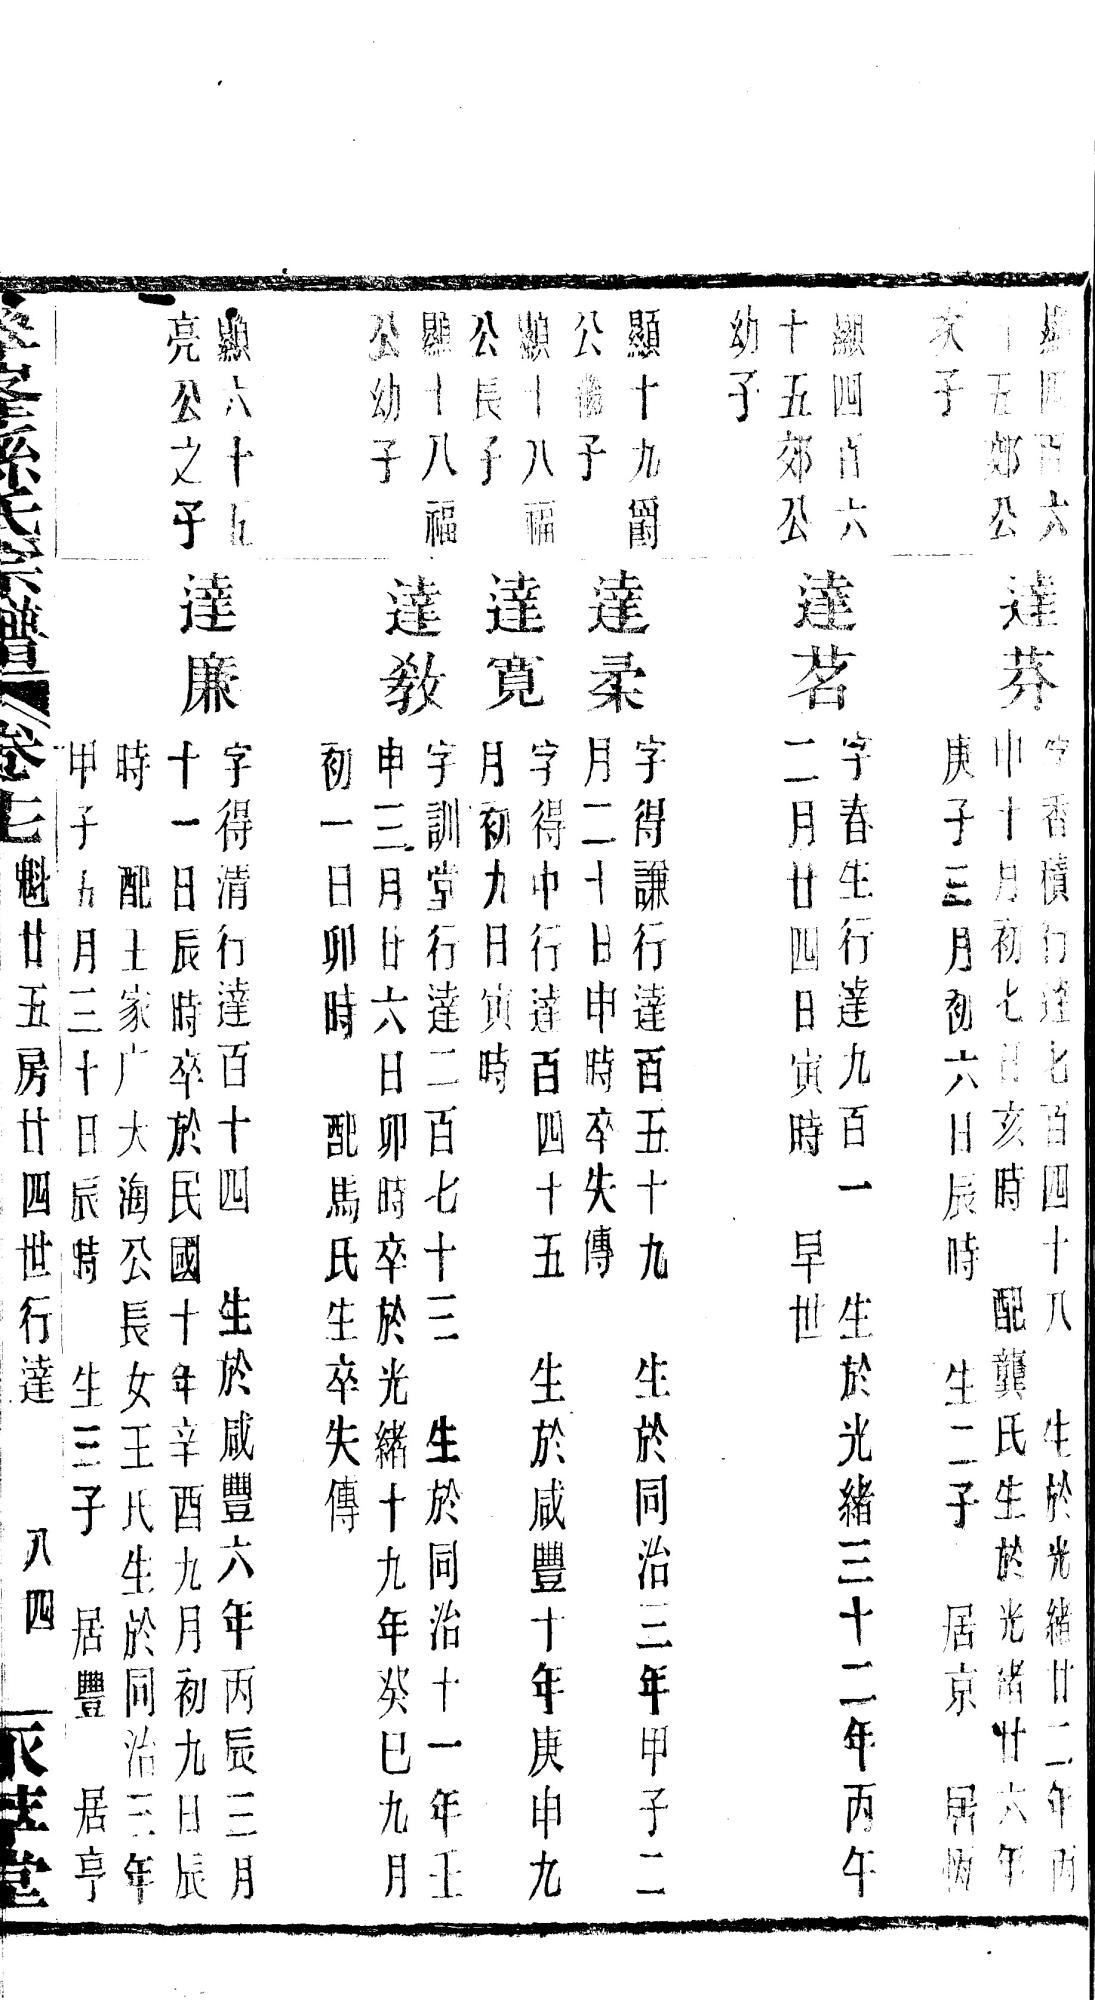 顯四百六
十五郊公
次子
達芬
字香積行達七百四十八　生於光緒廿二年丙
申十月初七日亥時　配龔氏生於光緒廿六年
庚子三月初六日辰時　生二子　居京　居
顯四百六
十五郊公
幼子
達茗
字春生行達九百一　生於光緒三十二年丙午
二月廿四日寅時　早世
顯十九爵
公 子
達柔
字得謙行達百五十九　生於同治三年甲子二
月二十日申時卒失傳
顯十八福
公長子
達寬
字得中行達百四十五　生於咸豐十年庚申九
月初九日寅時
顯十八福
公幼子
達教
字訓堂行達二百七十三　生於同治十一年壬
申三月廿六日卯時卒於光緒十九年癸巳九月
初一日卯時　配馬氏生卒失傳
顯六十五
亮公之子
達廉
字得清行達百十四　生於咸豐六年丙辰三月
十一日辰時卒於民國十年辛酉九月初九日辰
時　配土家广大海公長女王氏生於同治三年
甲子五月三十日辰時　生三子　居豐　居亨
孫氏宗譜　卷七　魁廿五房廿四世行達　八四　堂